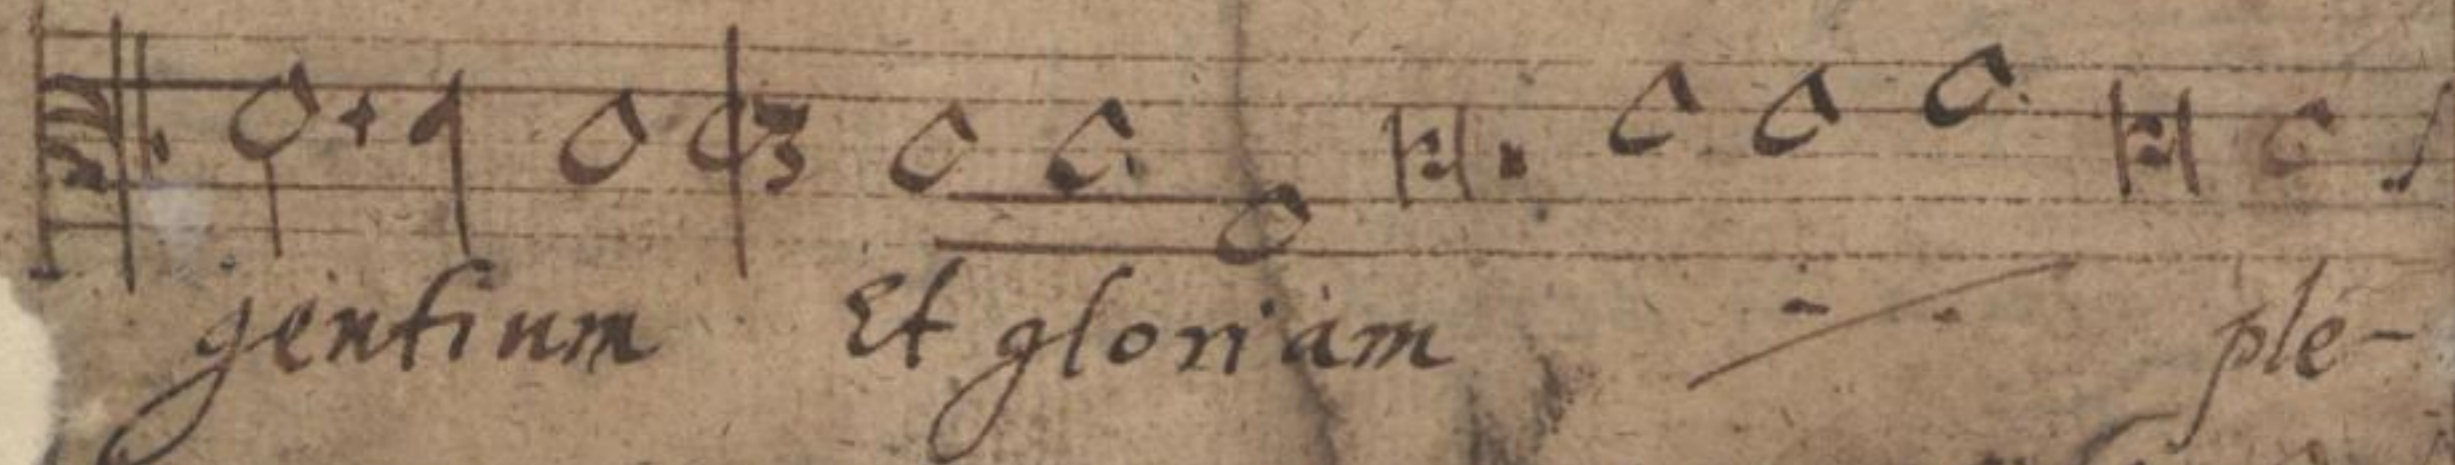 gentium Et gloriam plé-